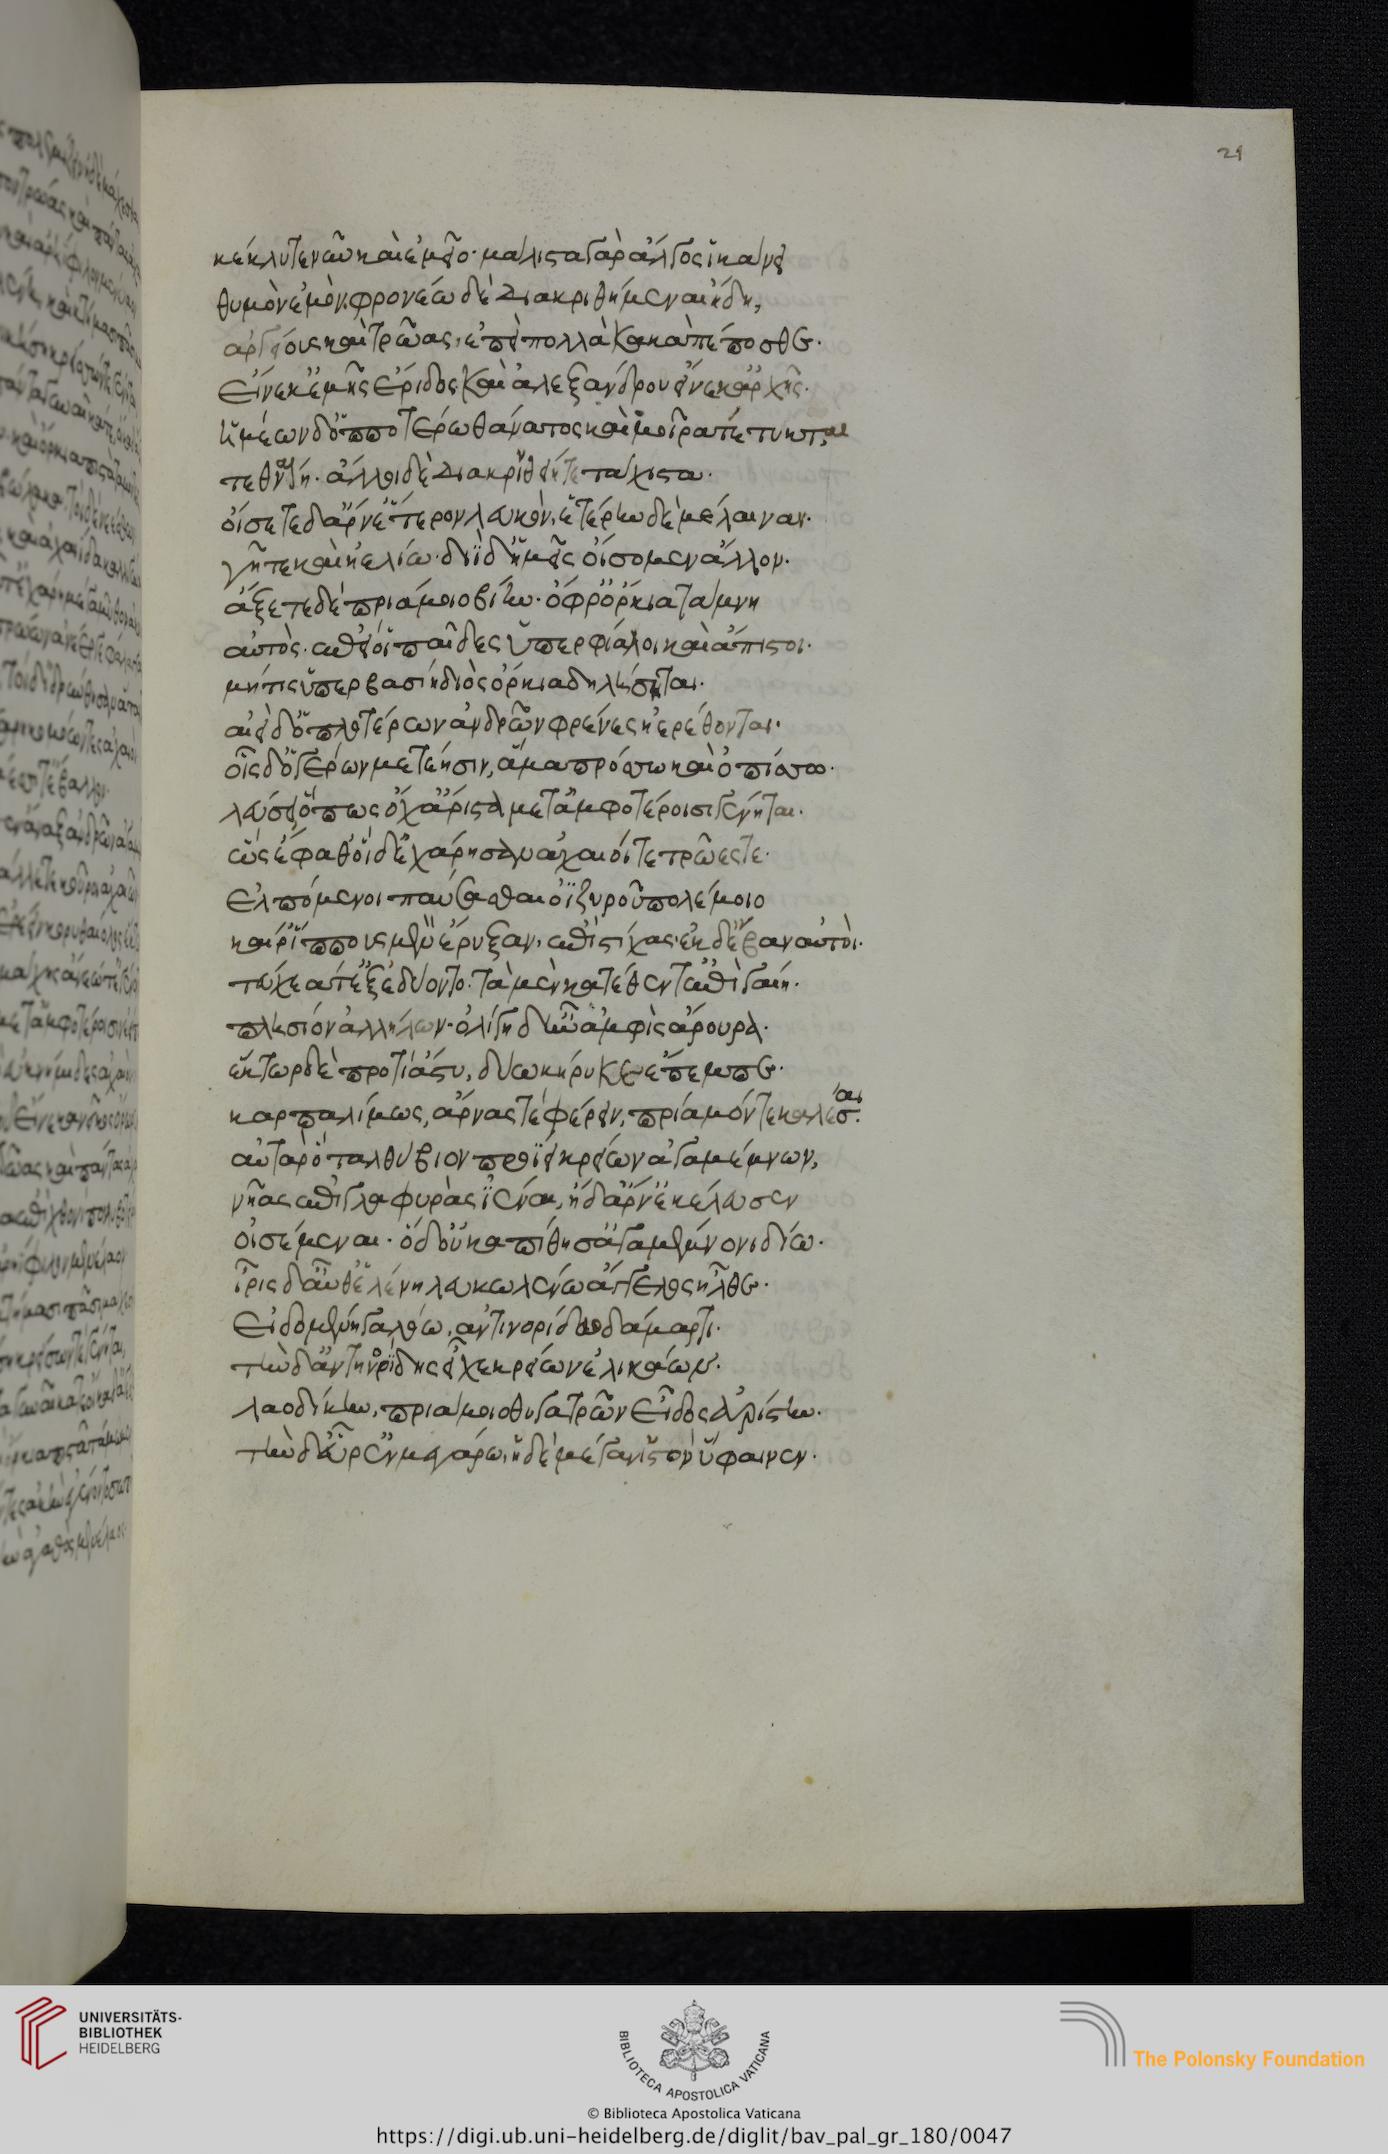 21
κέκλυτε νῦν καὶ ἐμεῖο· μάλιστα γὰρ ἄλγος ἱκάνει
θυμὸν ἐμόν. φρονέω δὲ διακριθήμεναι ἤδη,
ἀργείους καὶ τρῶας, ἐπεὶ πολλὰ κακὰ πέποσθε·
εἵνεκ' ἐμῆς ἔριδος καὶ ἀλεξάνδρου ἕνεκ' ἀρχῆς·
ἡμέων δ' ὁπποτέρω θάνατος καὶ μοῖρα τέτυκται
τεθναίη· ἄλλοι δὲ διακρινθεῖτε τάχιστα·
οἴσετε δ' ἄρν' ἕτερον λευκὸν, ἑτέρην δὲ μέλαιναν·
γῆ τε καὶ ἠελίω· διῒ δ' ἡμεῖς οἴσομεν ἄλλον·
ἄξετε δὲ πριάμοιο βίην· ὄφρ' ὅρκια τάμνη
αὐτὸς· ἐπεί οἱ παῖδες ὑπερφίαλοι καὶ ἄπιστοι·
μήτις ὑπερβασίη διὸς ὅρκια δηλήσηται·
αἰεὶ δ' ὁπλοτέρων ἀνδρῶν φρένες ἠερέθονται·
οἷς δ' ὁ γέρων μετέησιν, ἅμα πρόσσω καὶ ὀπίσσω·
λεύσσει ὅπως ὄχ' ἄριστα μετ' ἀμφοτέροισι γένηται·
ὣς ἔφαθ' οἱ δ' ἐχάρησαν ἀχαιοί τε τρῶές τε·
ἐλπόμενοι παύσασθαι ὀϊζυροῦ πολέμοιο
καί ῥ' ἵππους μὲν ἔρυξαν, ἐπὶ στίχας· ἐκ δ' ἔβαν αὐτοὶ·
τεύχεά τ' ἐξεδύοντο· τὰ μὲν κατέθεντ' ἐπὶ γαίη·
πλησίον ἀλλήλων· ὀλίγη δ' ἦν ἀμφὶς ἄρουρα·
ἕκτωρ δὲ προτὶ ἄστυ, δύω κήρυκε ἔπεμπε·
καρπαλίμως, ἄρνας τε φέρειν, πρίαμόν τε καλέσσαι·
αὐτὰρ ὁ ταλθύβιον προΐει κρείων ἀγαμέμνων,
νῆας ἐπὶ γλαφυρὰς ἰέναι, ἠδ' ἄρν' ἐκέλευσεν
οἰσέμεναι· ὁ δ' οὐκ ἀπίθησ' ἀγαμέμνονι δίω·
ἶρις δ' αὖθ' ἑλένη λευκωλένω ἄγγελος ἦλθε·
εἰδομένη γαλόω, ἀντηνορίδαο δάμαρτι·
τὴν ἀντηνορίδης εἶχε κρείων ἑλικάων·
λαοδίκην, πριάμοιο θυγατρῶν εἶδος ἀρίστην·
τὴν δ' εὗρ' ἐν μεγάρω, ἡ δὲ μέγαν ἱστὸν ὕφαινεν·
UNIVERSITÄTS-
BIBLIOTHEK
HEIDELBERG
BIBLIOTECA APOSTOLICA VATICANA
The Polonsky Foundation
© Biblioteca Apostolica Vaticana
https://digi.ub.uni-heidelberg.de/diglit/bav_pal_gr_180/0047